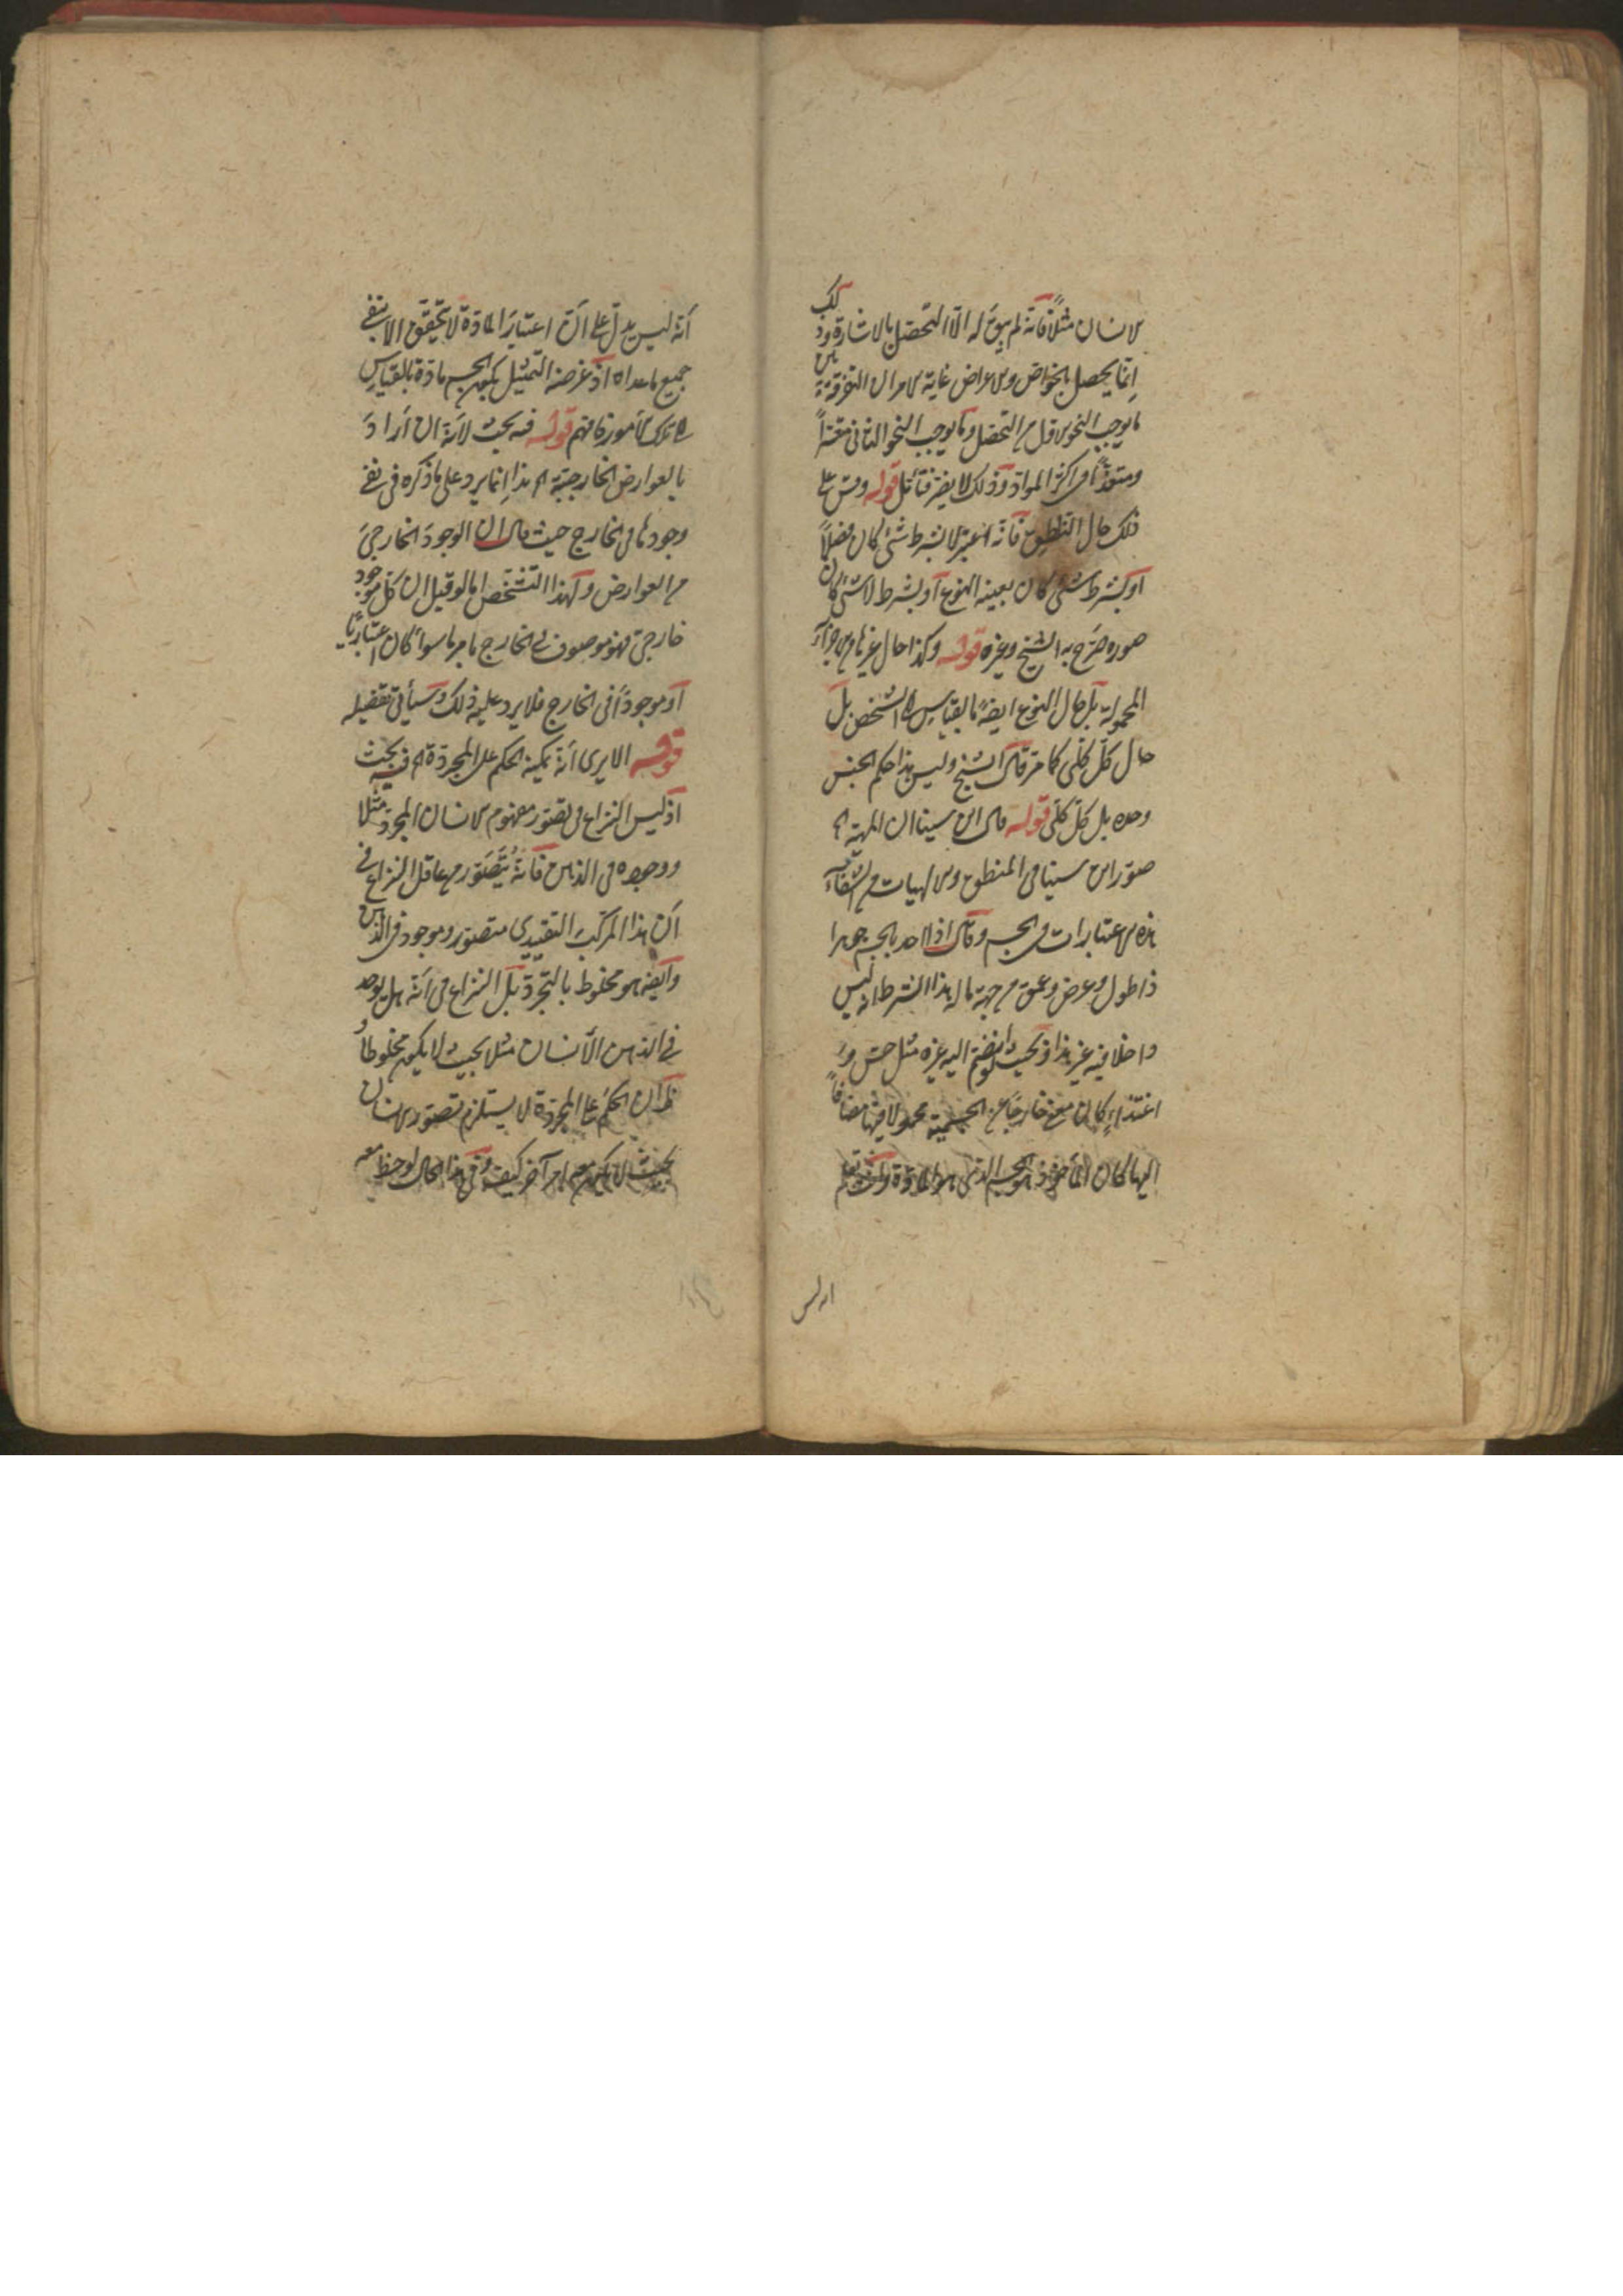 الانسان مثلاً فانّه لم يبق له الّا التحصّل بالاشارة وذلك
انّما يحصل بالخواص والاعراض غاية الامر ان التفرقة بين
ما يوجب النحو الاول من التحصّل وما يوجب النحو الثانى متعسّراً
ومتعذّراً فى اكثر المواد وذلك لا يضرّ فتأمّل قوله وقس على
ذلك حال الناطق فانّه ان اعتبر لا بشرط شئ كان فصلاً
او بشرط شئ كان بعينه النوع او بشرط لا شئ كان
صورة صرّح به الشيخ وغيره قوله وكذا حال غيرها من الاجزاء
المحمولة بل حال النوع ايضاً بالقياس الى الشخص بل
حال كلّ كلّى كما مرّ قال الشيخ وليس هذا حكم الجنس
وحده بل كلّ كلّى قوله قال ابن سينا ان المهيّة اه
صوّر ابن سينا فى المنطق والالهيات من الشفاء
هذه الاعتبارات فى الجسم وقال اذا اخذ بالجسم جوهرا
ذا طول وعرض وعمق من جهة ما له هذا الشرط انه ليس
داخلا فيه غير هذا وبحيث لو انضم اليه غيره مثل حس و
اغتذاء كان معنى خارجًا عن الجسمية محمولا فيها مضافاً
اليها كان المأخوذ هو الجسم الذى هو المادّة
انه ليس
أنّه ليس يدلّ على انّ اعتبار المادّة لا يتحقق الا بنفى
جميع ما عداه اذ غرضه التمثيل بكون الجسم مادّة بالقياس
الى تلك الأمور فافهم قوله فيه بحث لأنّه ان أراد
بالعوارض الخارجيّة اه هذا انّما يرد على ما ذكره فى نفى
وجودها فى الخارج حيث قال ان الوجود الخارجىّ
من العوارض ولهذا التشخّص امّا لو قيل ان كلّ موجود
خارجىّ فهو موصوف فى الخارج بامر ما سواء كان اعتباريًّا
او موجوداً فى الخارج فلا يرد عليه ذلك وسيأتى تفصيله
قوله الا يرى أنّه يمكنه الحكم على المجرّدة اه فيه بحث
اذ ليس النزاع فى تصوّر مفهوم الانسان المجرّد مثلا
ووجوده فى الذهن فانّه يتصوّر من عاقل النزاع فى
انّ هذا المركّب التقييدى متصوّر وموجود فى الذهن
وايضا هو مخلوط بالتجرّد بل النزاع فى انّه هل يوجد
فى الذهن الانسان مثلا بحيث لا يكون مخلوطا و
ظ ان الحكم على المجرّدة لا يستلزم تصوّر الانسان
بحيث لا يكون معه امر آخر كيف وفى هذا الحال لوحظ معه